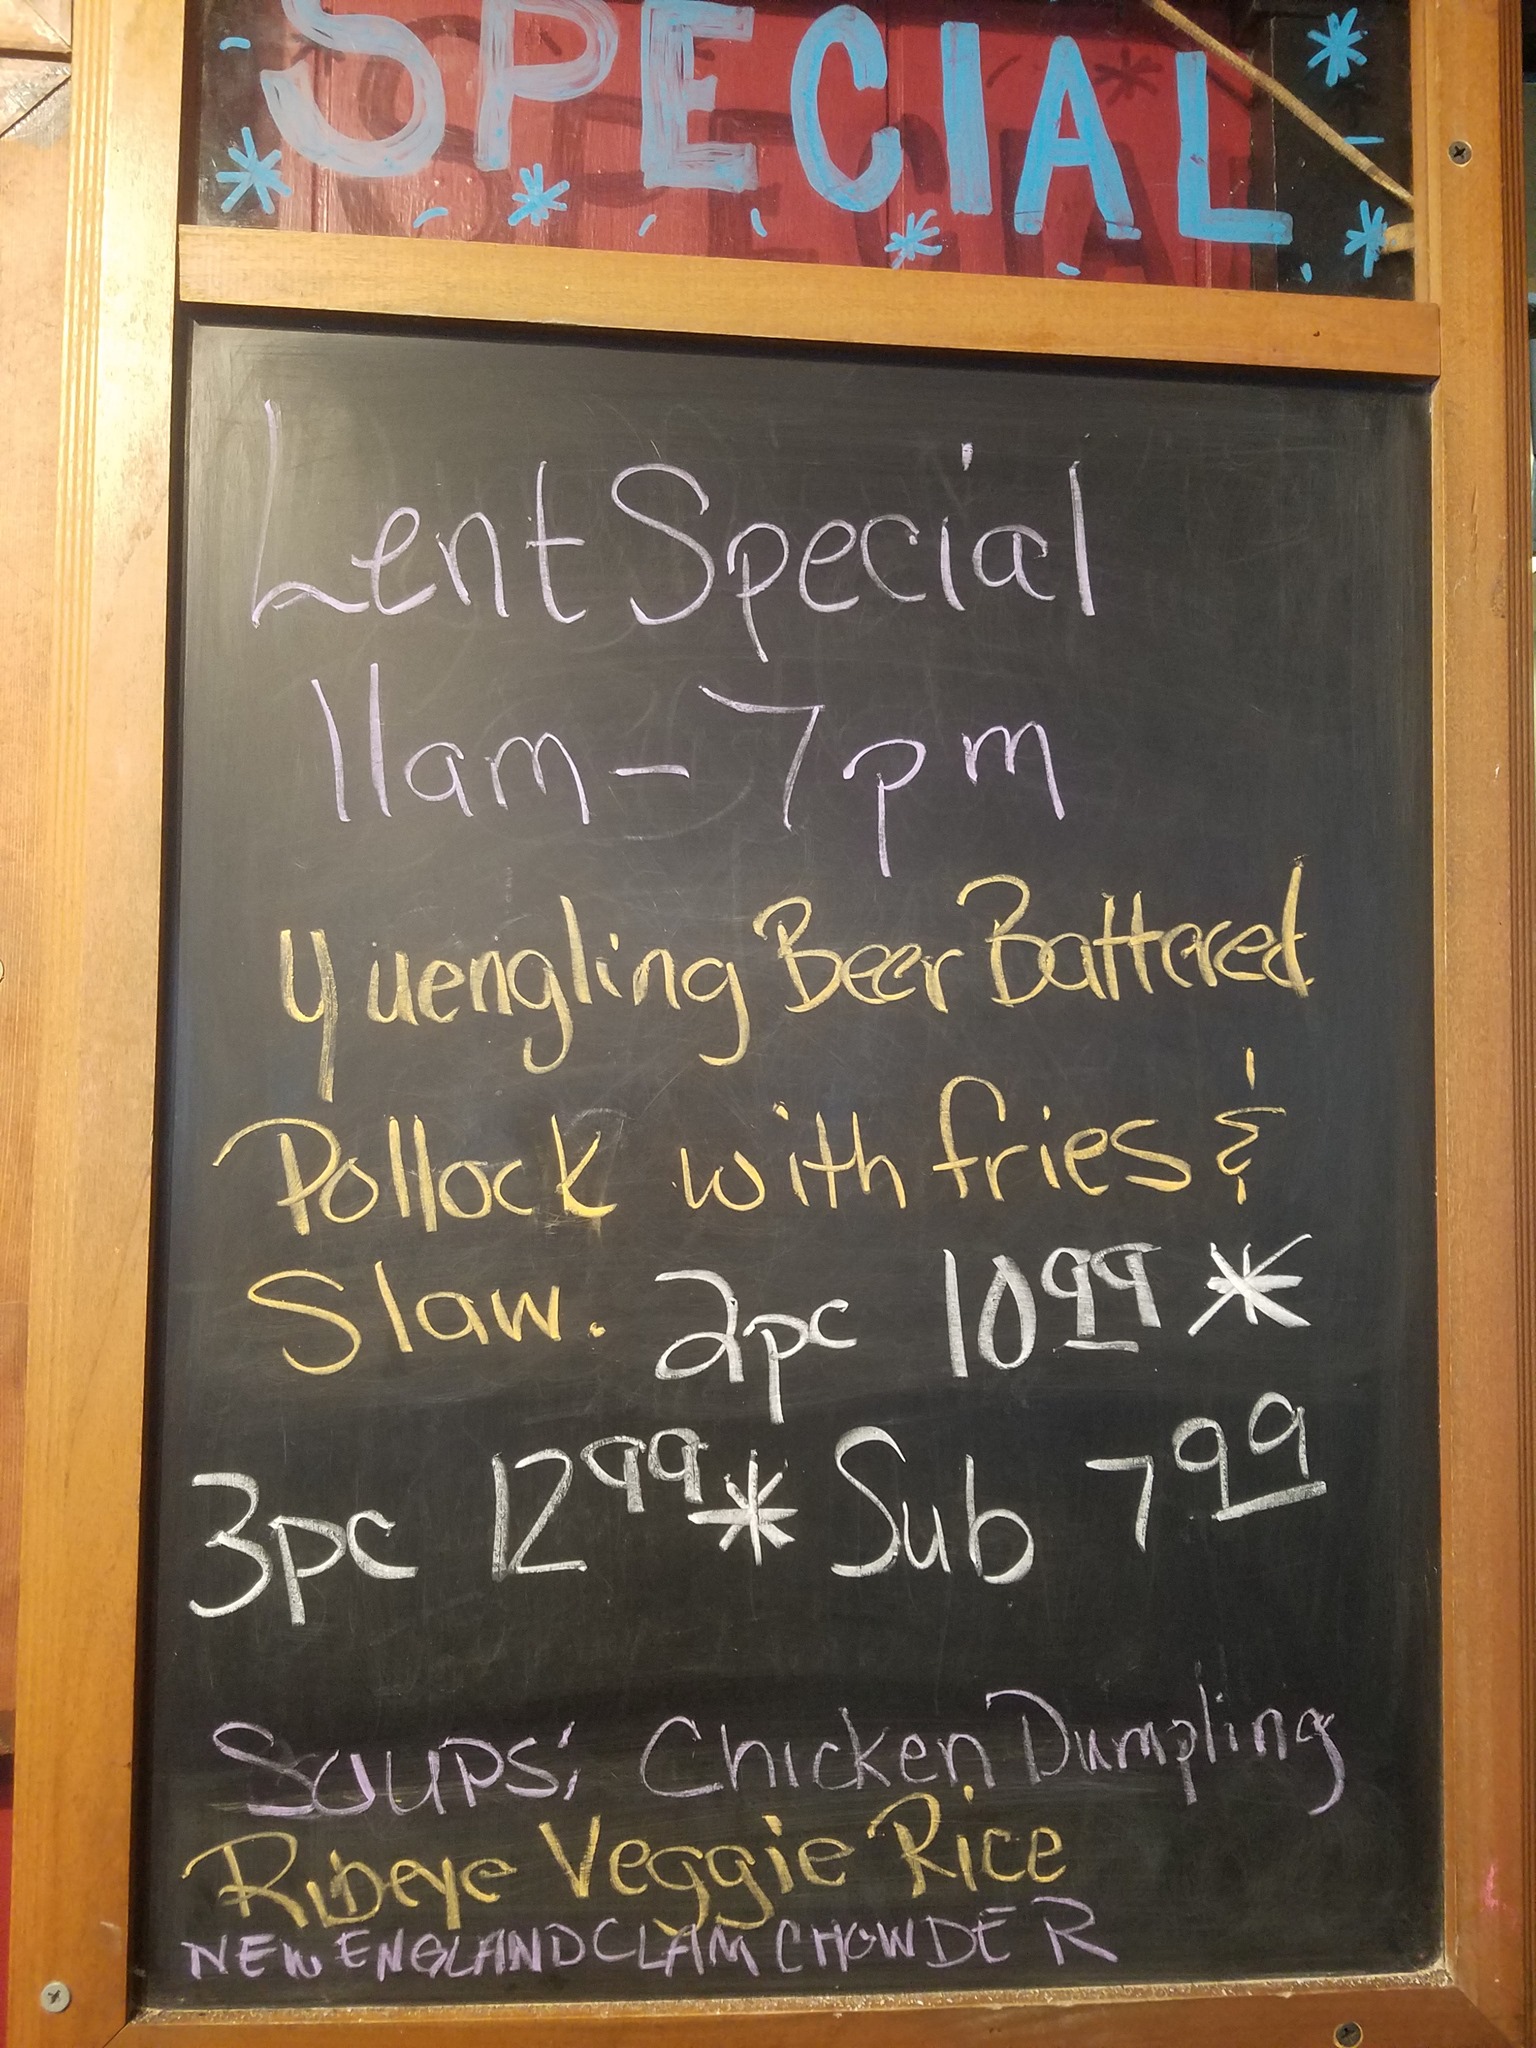 SPECIAL
Lent Special
11am - 7pm
Yuengling Beer Battered
Pollock with fries &
Slaw. 2pc 10.99 *
3pc 12.99 * Sub 7.99
Soups: Chicken Dumpling
Ribeye Veggie Rice
NEW ENGLAND CLAM CHOWDER